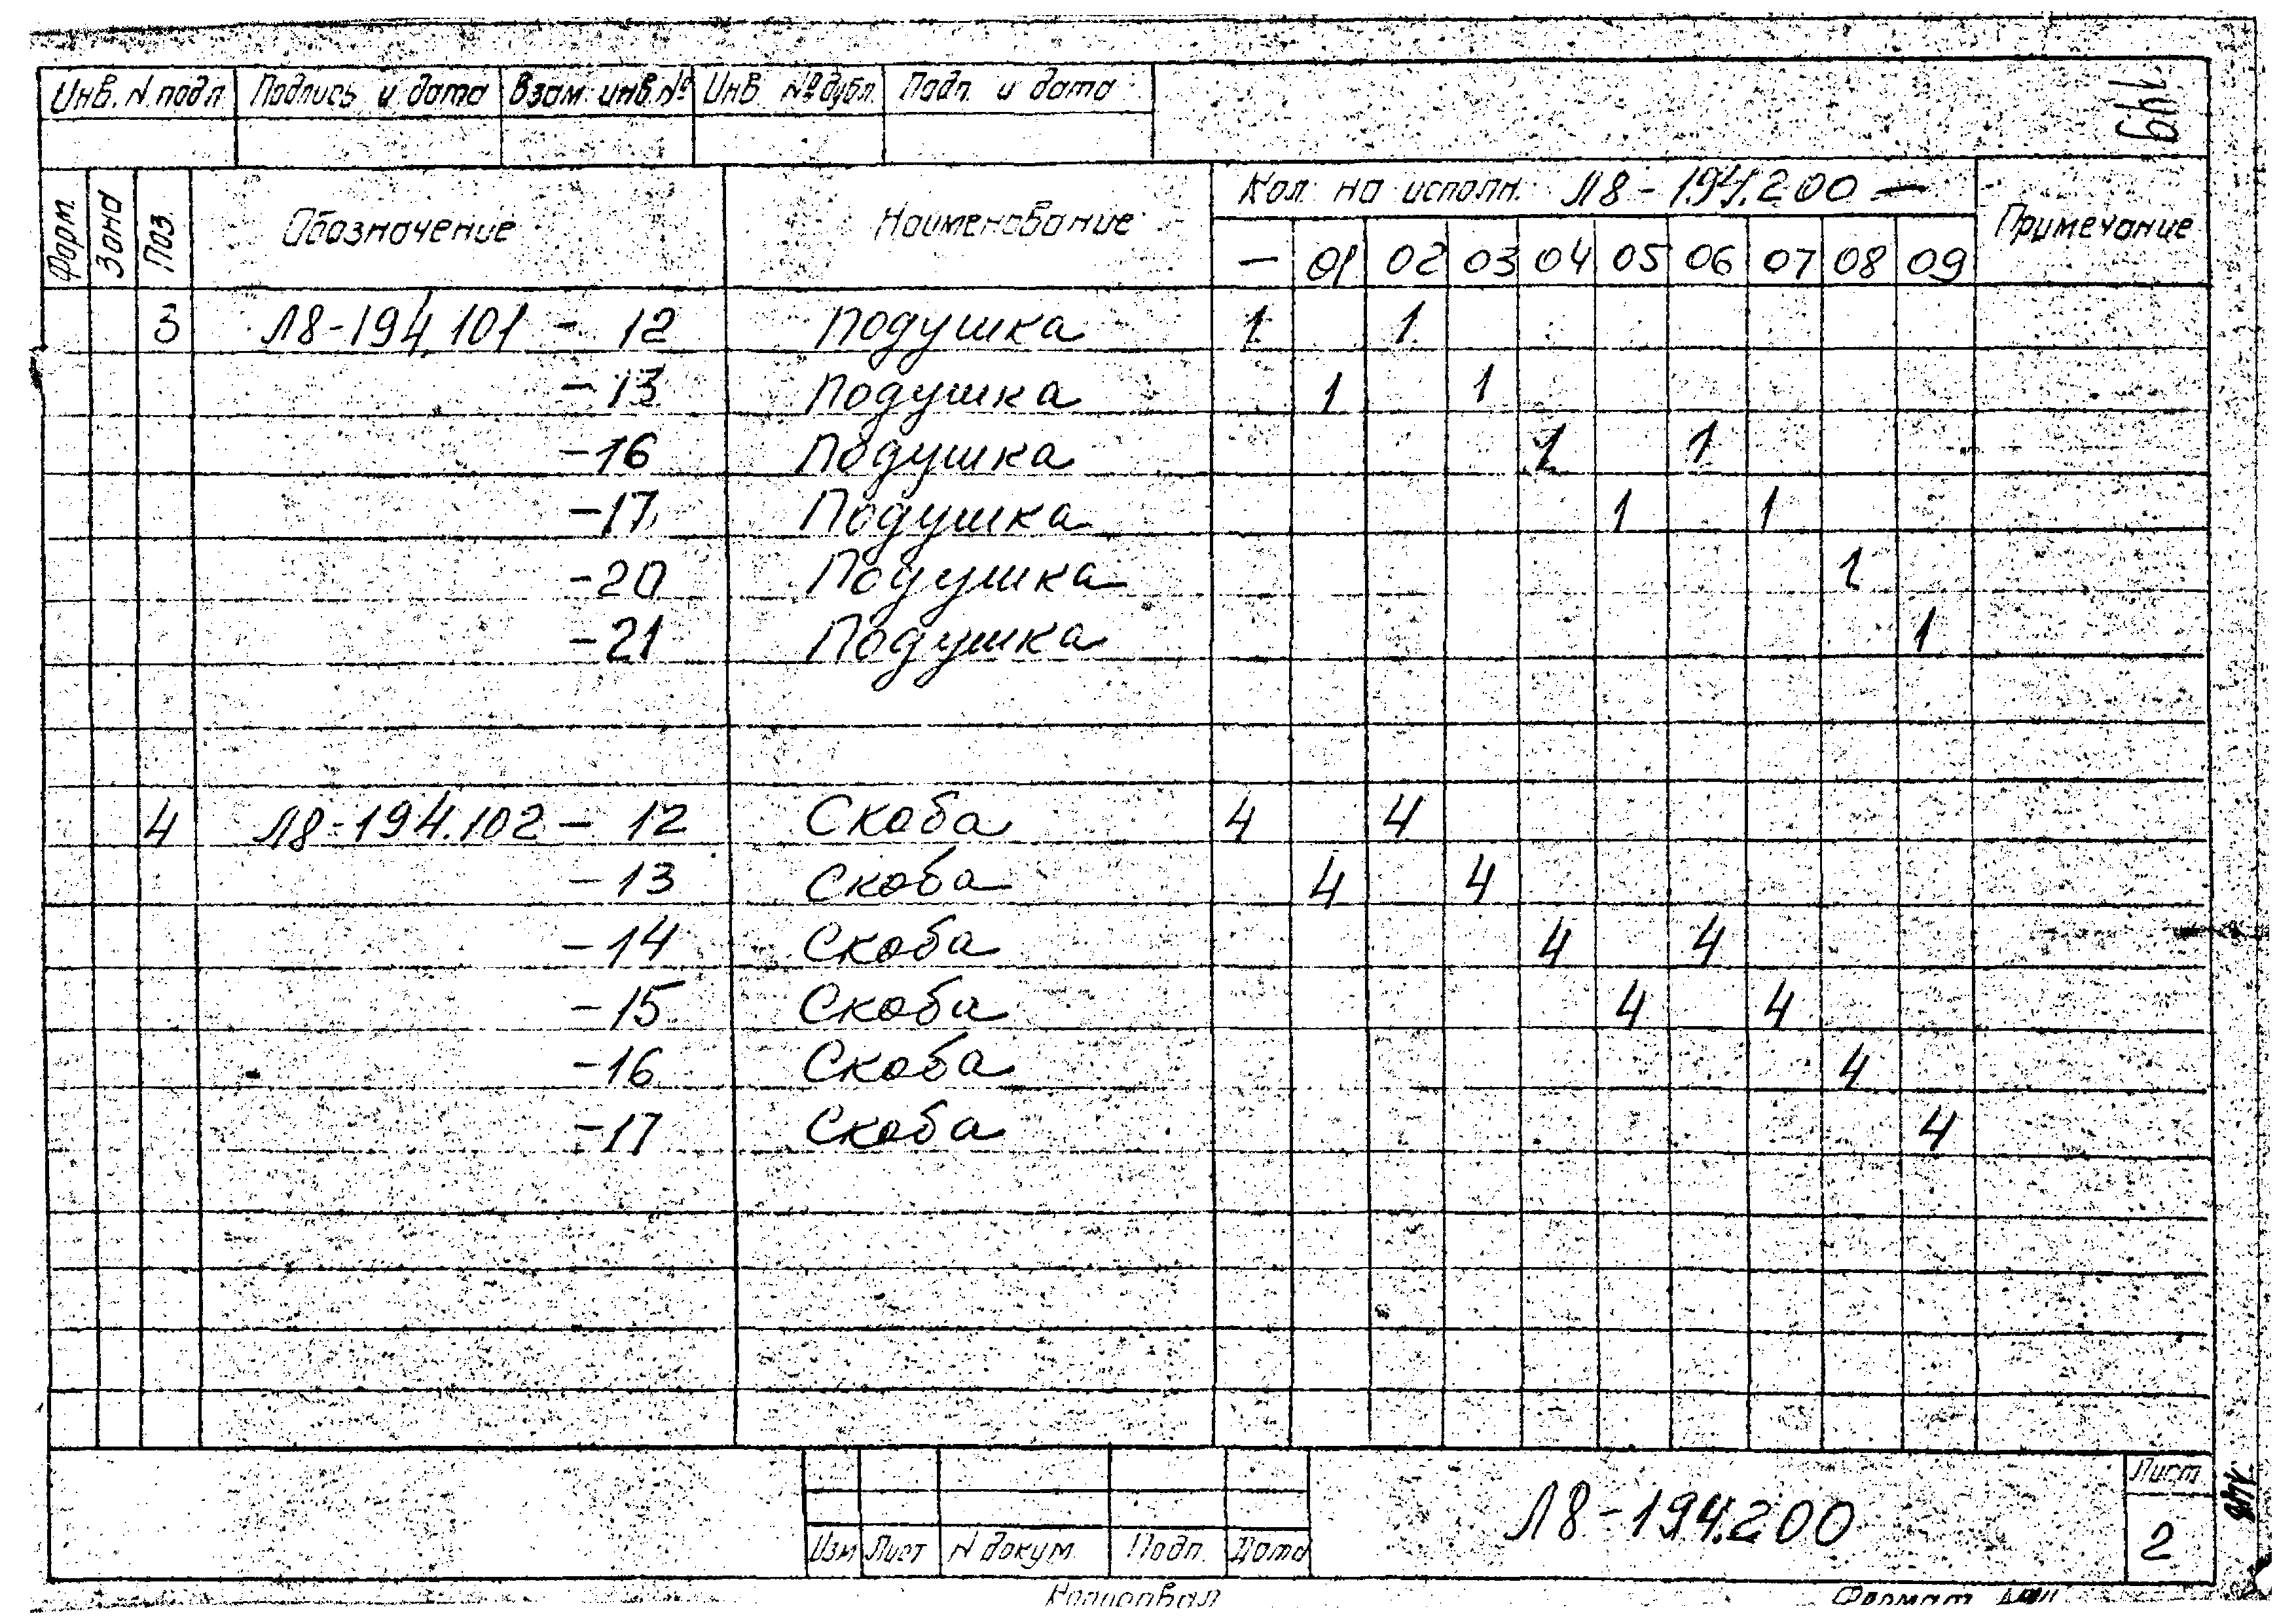 Инв. N подл Подпись и дата Взам. инв. № Инв. № дубл. Подп. и дата
149
Форм. Зона Поз. Обозначение Наименование Кол. на исполн. Л8-194.200 — Примечание
— 01 02 03 04 05 06 07 08 09
3 Л8-194.101 - 12 Подушка 1 1
-13 Подушка 1 1
-16 Подушка 1 1
-17 Подушка 1 1
-20 Подушка 1
-21 Подушка 1
4 Л8-194.102 - 12 Скоба 4 4
-13 Скоба 4 4
-14 Скоба 4 4
-15 Скоба 4 4
-16 Скоба 4
-17 Скоба 4
Л8-194.200
Лист
2
Изм Лист N докум. Подп. Дата
Копировал Формат